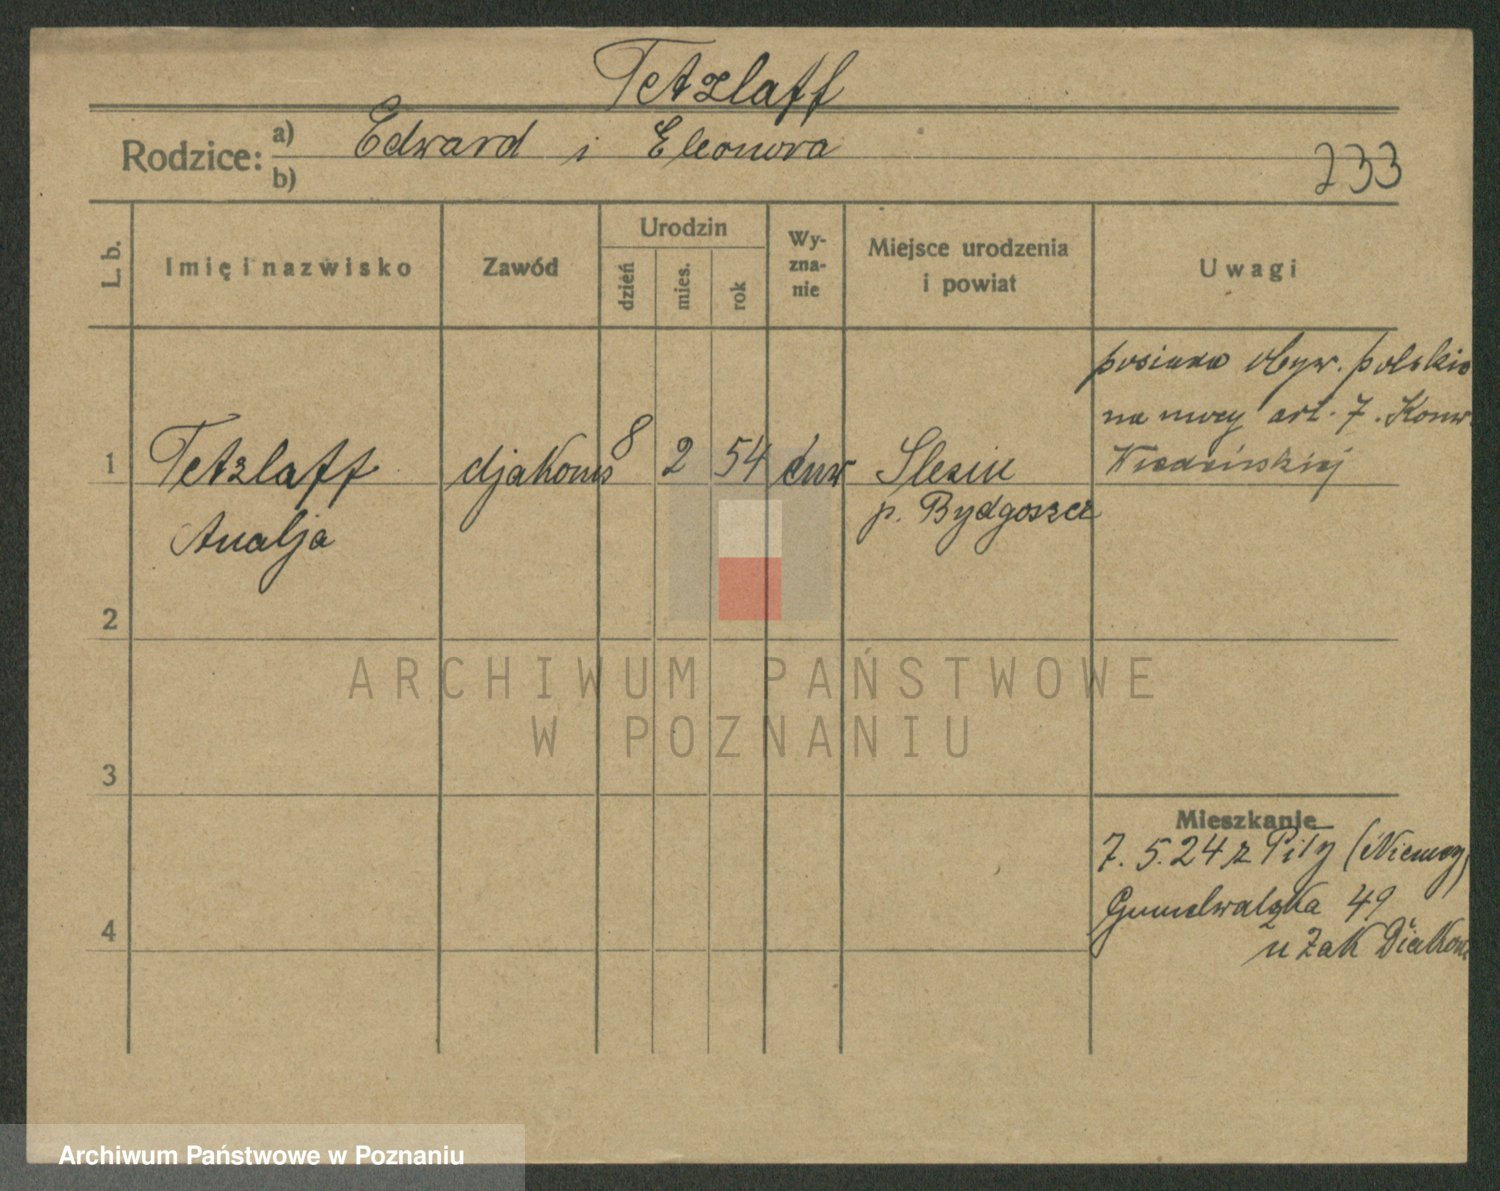 Tetzlaff
Rodzice: a) Edward i Eleonora
b)
233
L. b.
Imię i nazwisko
Zawód
Urodzin
dzień
mies.
rok
Wy-
zna-
nie
Miejsce urodzenia
i powiat
Uwagi
posiada obyw. polskie
na mocy art. 7. Konw.
Wiedeńskiej
1 Tetzlaff djakonis 8 2 54 ew Slesin
Amalja
p. Bydgoszcz
2
3
4
Mieszkanie
7. 5. 24 z Piły (Niemcy)
Grunwaldzka 49
u Zak Diakon.
ARCHIWUM PAŃSTWOWE
W POZNANIU
Archiwum Państwowe w Poznaniu